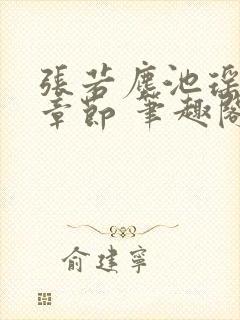 張若塵池瑤
章節 筆趣閣
俞建寧